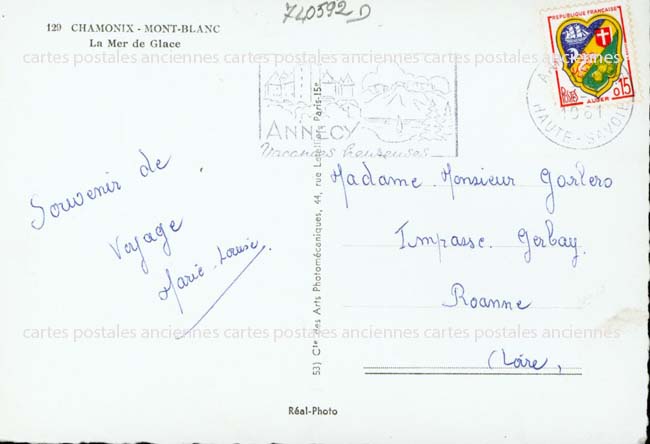 740592D
129 CHAMONIX - MONT-BLANC
La Mer de Glace
REPUBLIQUE FRANÇAISE
POSTES
0,15
ALGER
ANNECY
Vacances heureuses
HAUTE-SAVOIE
cartes postales anciennes cartes postales anciennes cartes postales anciennes
Souvenir de
Voyage
Marie-Louise
53) Cie des Arts Photomécaniques, 44, rue Letellier, Paris-15e
Madame. Monsieur Garlero
Impasse. Gerbay.
Roanne
(Loire,
cartes postales anciennes cartes postales anciennes cartes postales anciennes
Réal-Photo